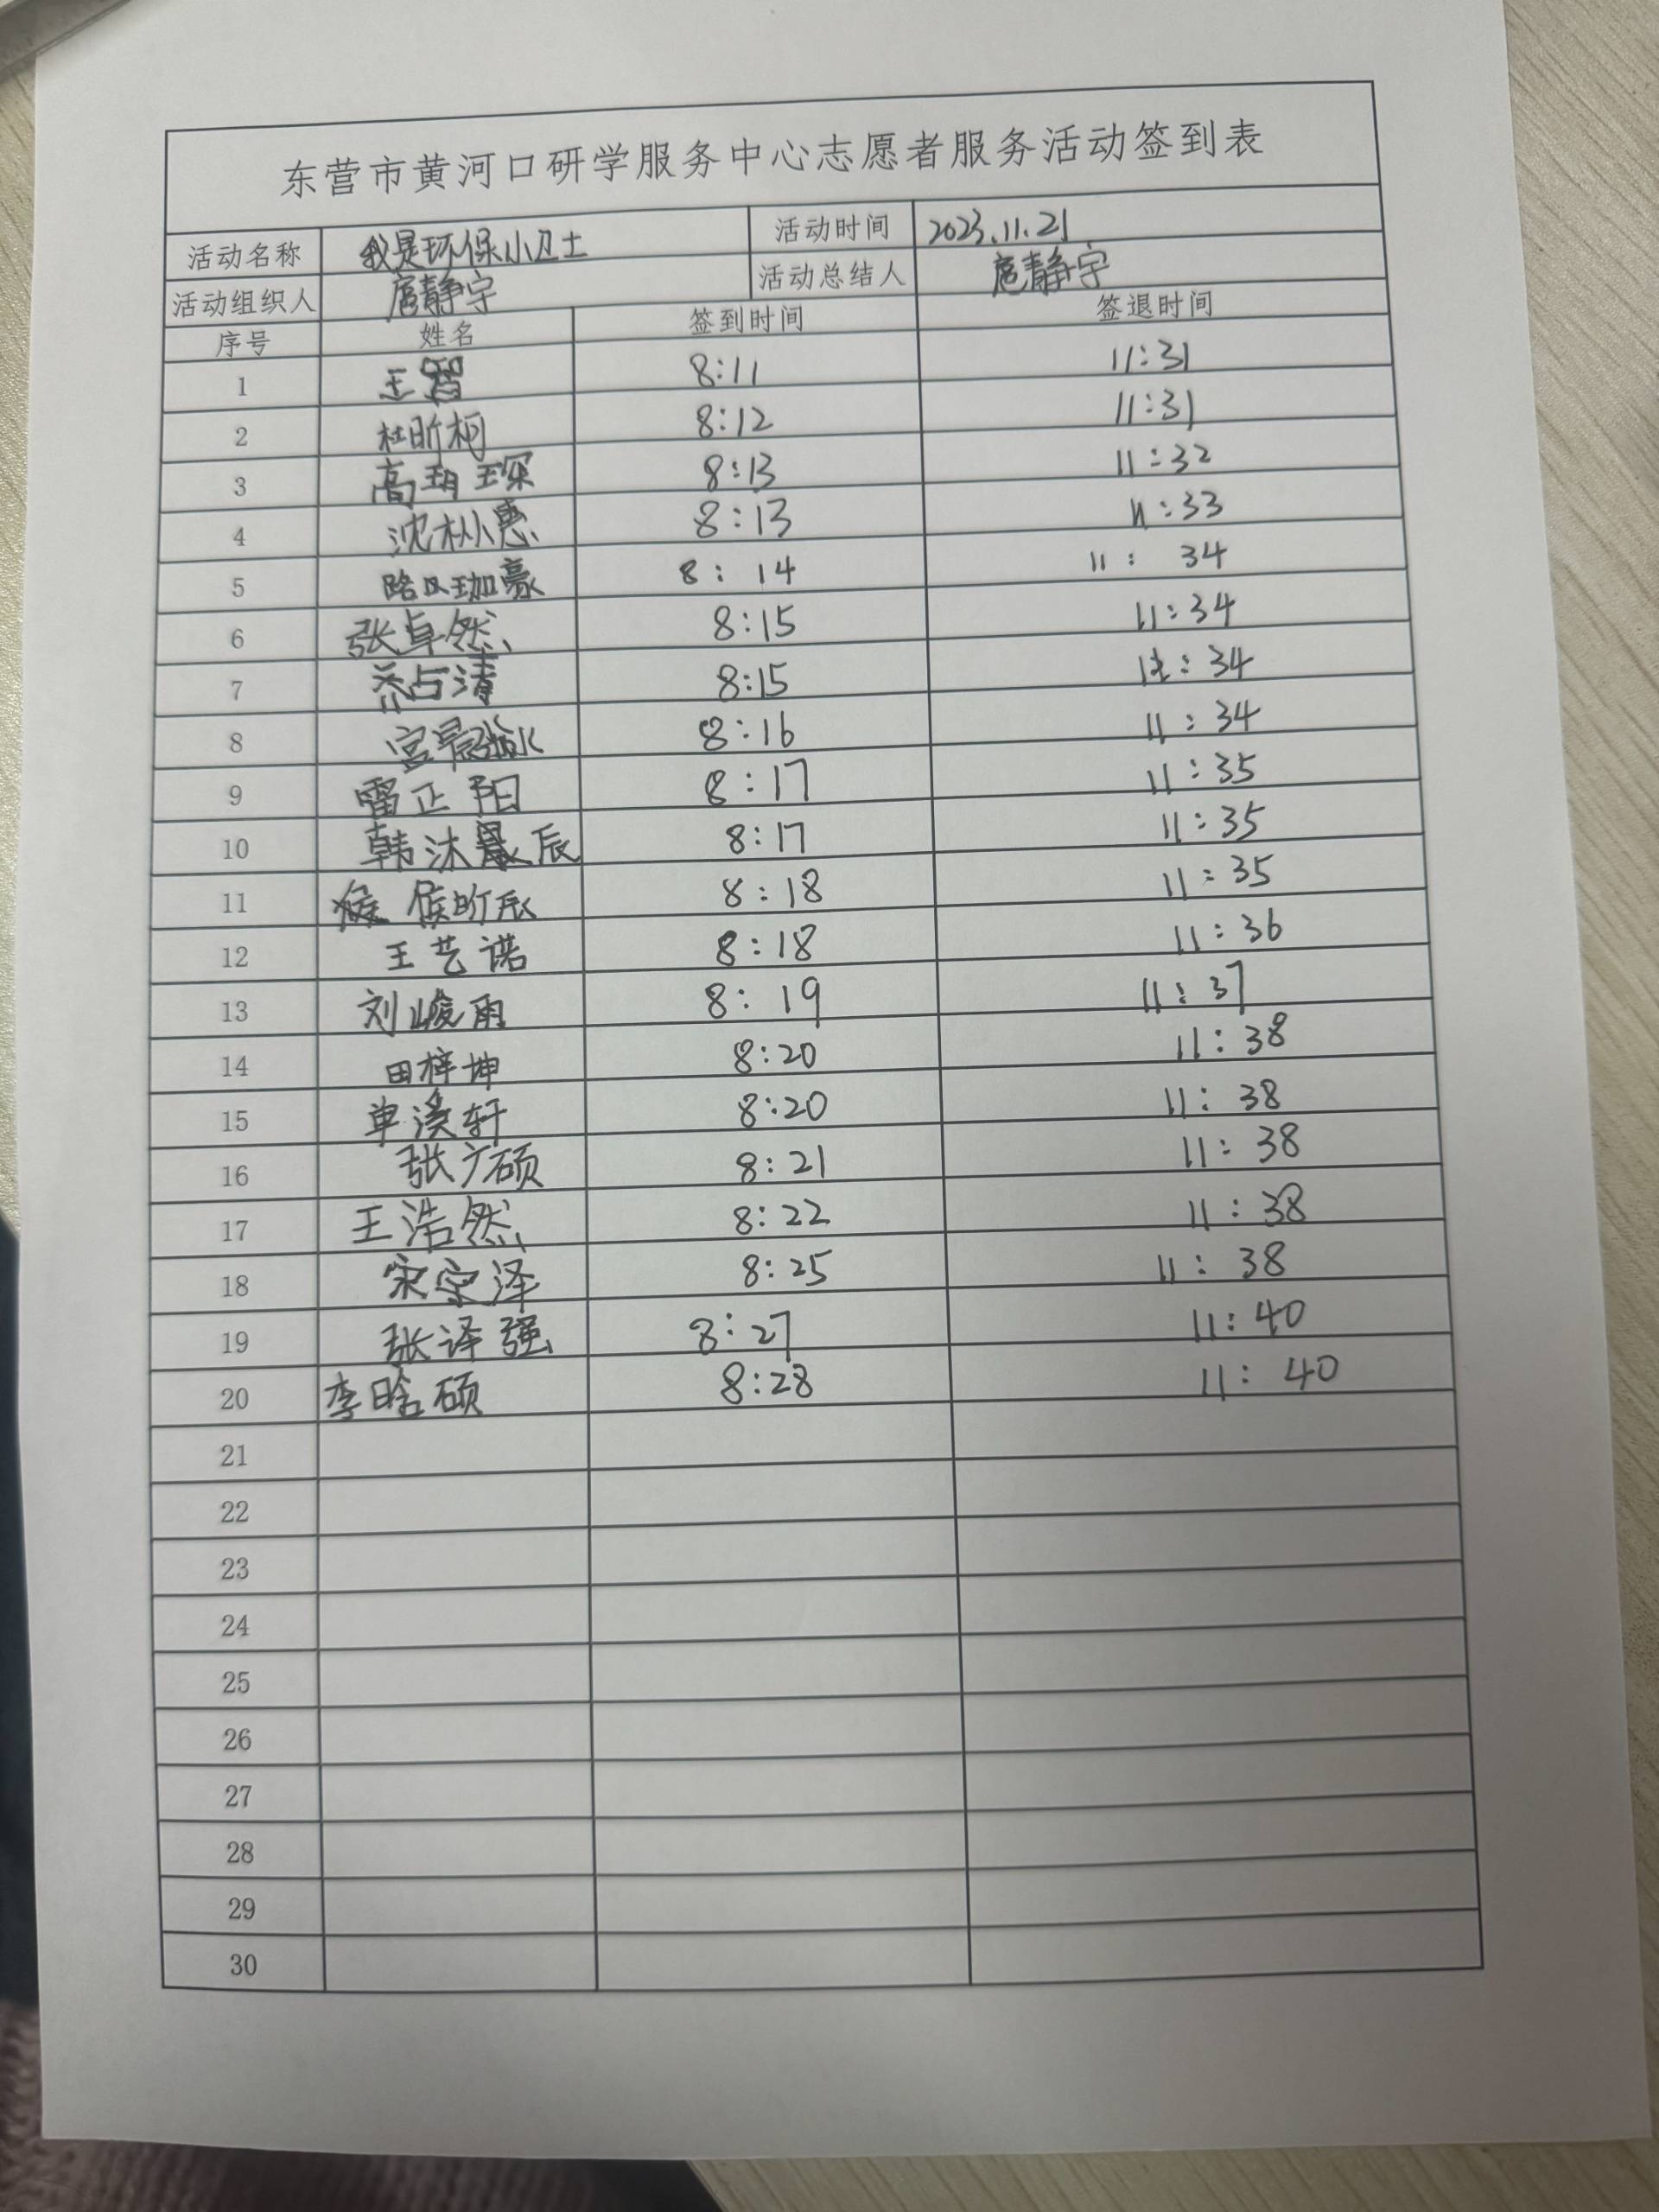 东营市黄河口研学服务中心志愿者服务活动签到表
活动名称 我是环保小卫士 活动时间 2023.11.21
活动组织人 扈静宇 活动总结人 扈静宇
序号 姓名 签到时间 签退时间
1 王智 8:11 11:31
2 杜昕柯 8:12 11:31
3 高玥琛 8:13 11:32
4 沈 8:13 11:33
5 路 豪 8:14 11:34
6 张卓然 8:15 11:34
7 乔占清 8:15 11:34
8 宫晨 8:16 11:34
9 雷正阳 8:17 11:35
10 韩沐辰 8:17 11:35
11 侯昕辰 8:18 11:35
12 王艺诺 8:18 11:36
13 刘峻雨 8:19 11:37
14 田梓坤 8:20 11:38
15 单溪轩 8:20 11:38
16 张广硕 8:21 11:38
17 王浩然 8:22 11:38
18 宋宗泽 8:25 11:38
19 张译强 8:27 11:40
20 李晗硕 8:28 11:40
21
22
23
24
25
26
27
28
29
30